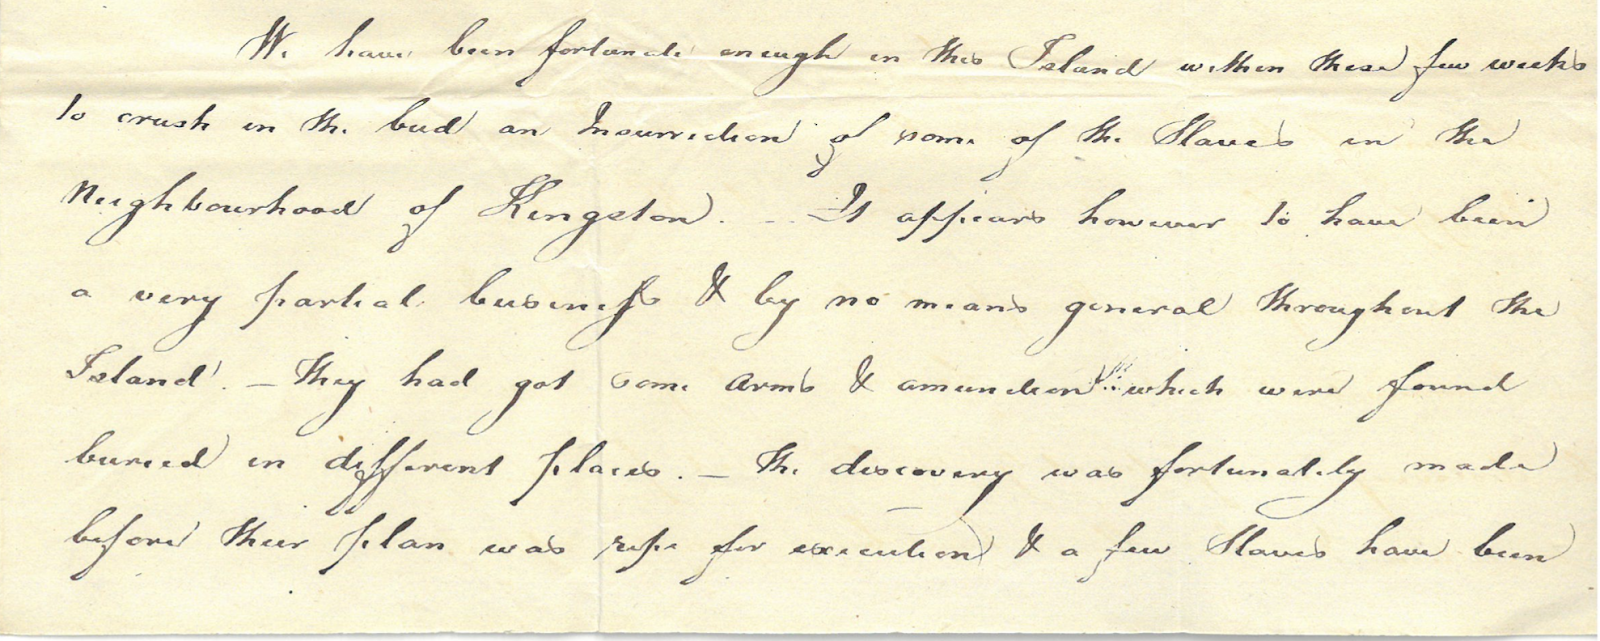 We have been fortunate enough in this Island within these few weeks
to crush in the bud an Insurrection of some of the Slaves in the
Neighbourhood of Kingston. - It appears however to have been
a very partial business & by no means general throughout the
Island. - They had got some arms & amunition which were found
buried in different places. - The discovery was fortunately made
before their plan was ripe for execution & a few Slaves have been